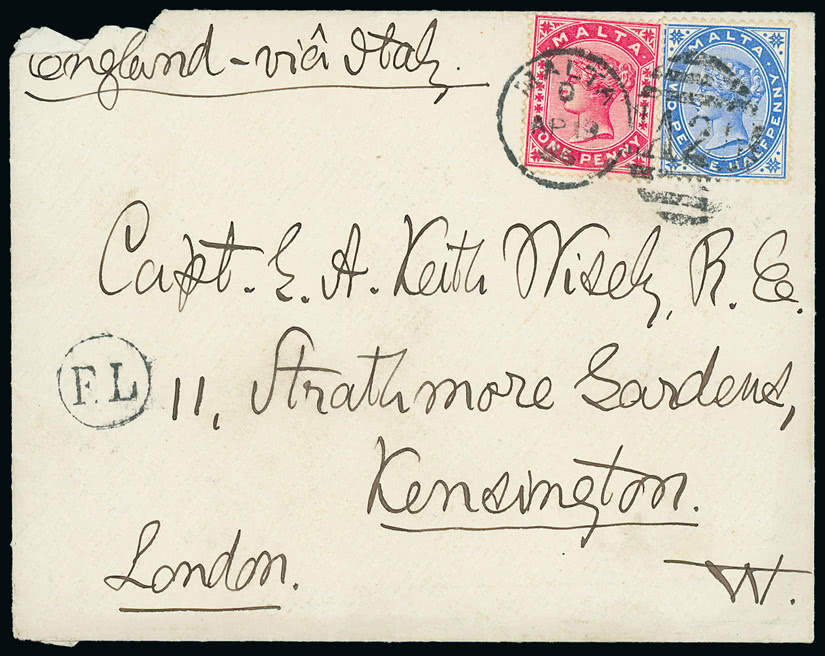 England - viâ Italy.
MALTA
ONE PENNY
MALTA
HALFPENNY
MALTA
D
AP 19
Capt. E. A. Keith Wisely, R. E.
F.L
11, Strathmore Gardens,
Kensington.
London.
W.